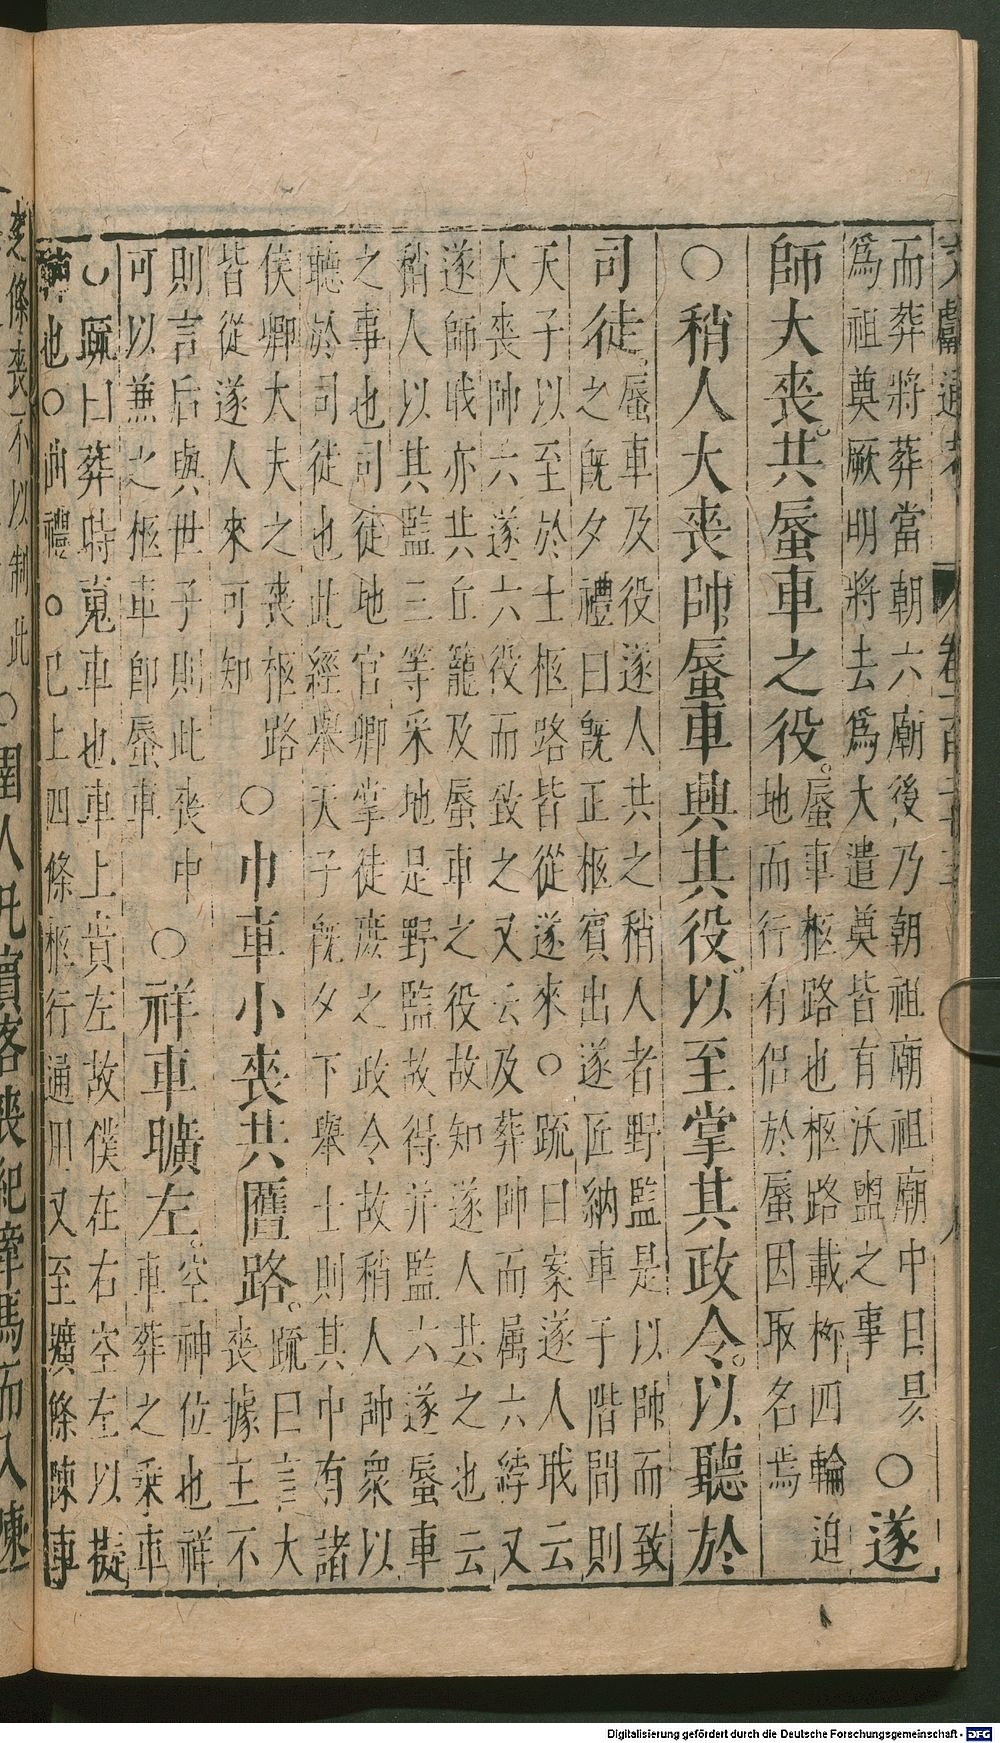 而葬將葬當朝六廟後乃朝祖廟祖廟中日昃
爲祖奠厥明將去爲大遣奠皆有沃盥之事
○遂
師大喪共蜃車之役
蜃車柩路也柩路載柳四輪迫
地而行有侣於蜃因取名焉
○稍人大喪帥蜃車與其役以至掌其政令以聽於
司徒
蜃車及役遂人共之稍人者野監是以帥而致
之旣夕禮曰旣正柩賓出遂匠納車于階間則
天子以至於士柩路皆從遂來○疏曰案遂人戝云
大喪帥六遂六役而致之又云及葬帥而属六綍又
遂師戝亦共丘籠及蜃車之役故知遂人共之也云
稍人以其監三等采地是野監故得并監六遂蜃車
之事也司徒地官卿掌徒庶之政令故稍人帥衆以
聽於司徒也此經舉天子旣夕下舉士則其中有諸
侯卿大夫之喪柩路
皆從遂人來可知
○巾車小喪共匶路
疏曰言大
喪據王不
則言后與世子則此喪中
可以兼之柩車卽蜃車
○祥車曠左
空神位也祥
車葬之乗車
○疏曰葬時䰟車也車上貴左故僕在右空左以擬
神也○曲禮○已上四條柩行通用又至壙條陳車
喪不以制此
○圉人凡賓客喪紀牽馬而入陳
Digitalisierung gefördert durch die Deutsche Forschungsgemeinschaft - DFG